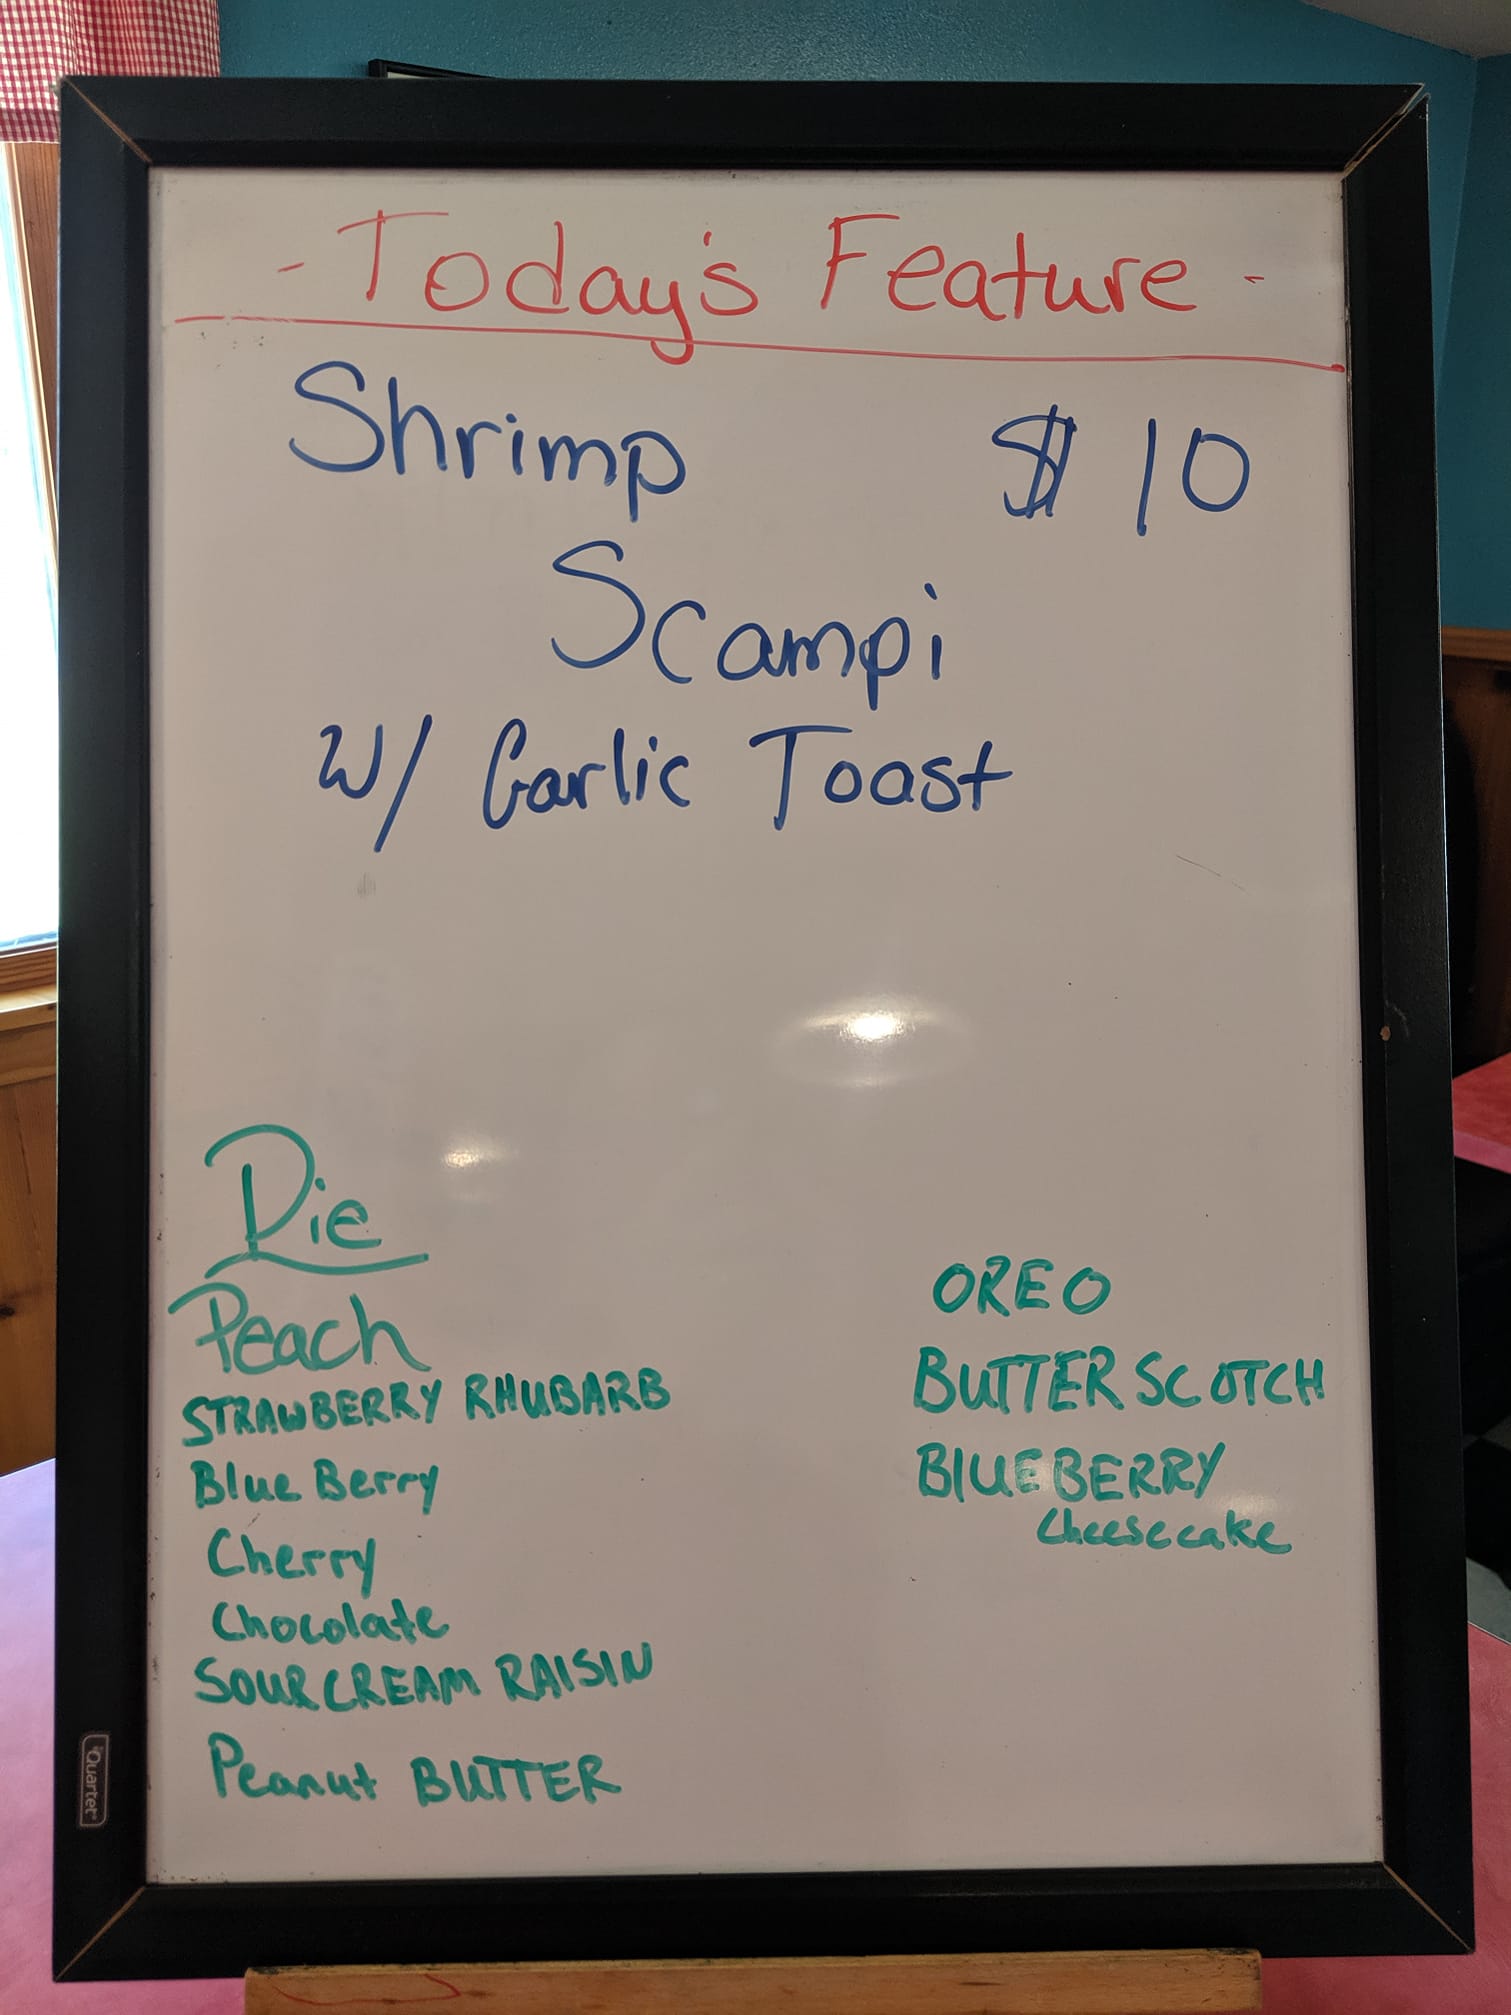 - Today's Feature -
Shrimp $10
Scampi
w/ Garlic Toast
Pie
Peach
STRAWBERRY RHUBARB
Blue Berry
Cherry
Chocolate
SOUR CREAM RAISIN
Peanut BUTTER
OREO
BUTTERSCOTCH
BLUEBERRY
Cheesecake
Quartet